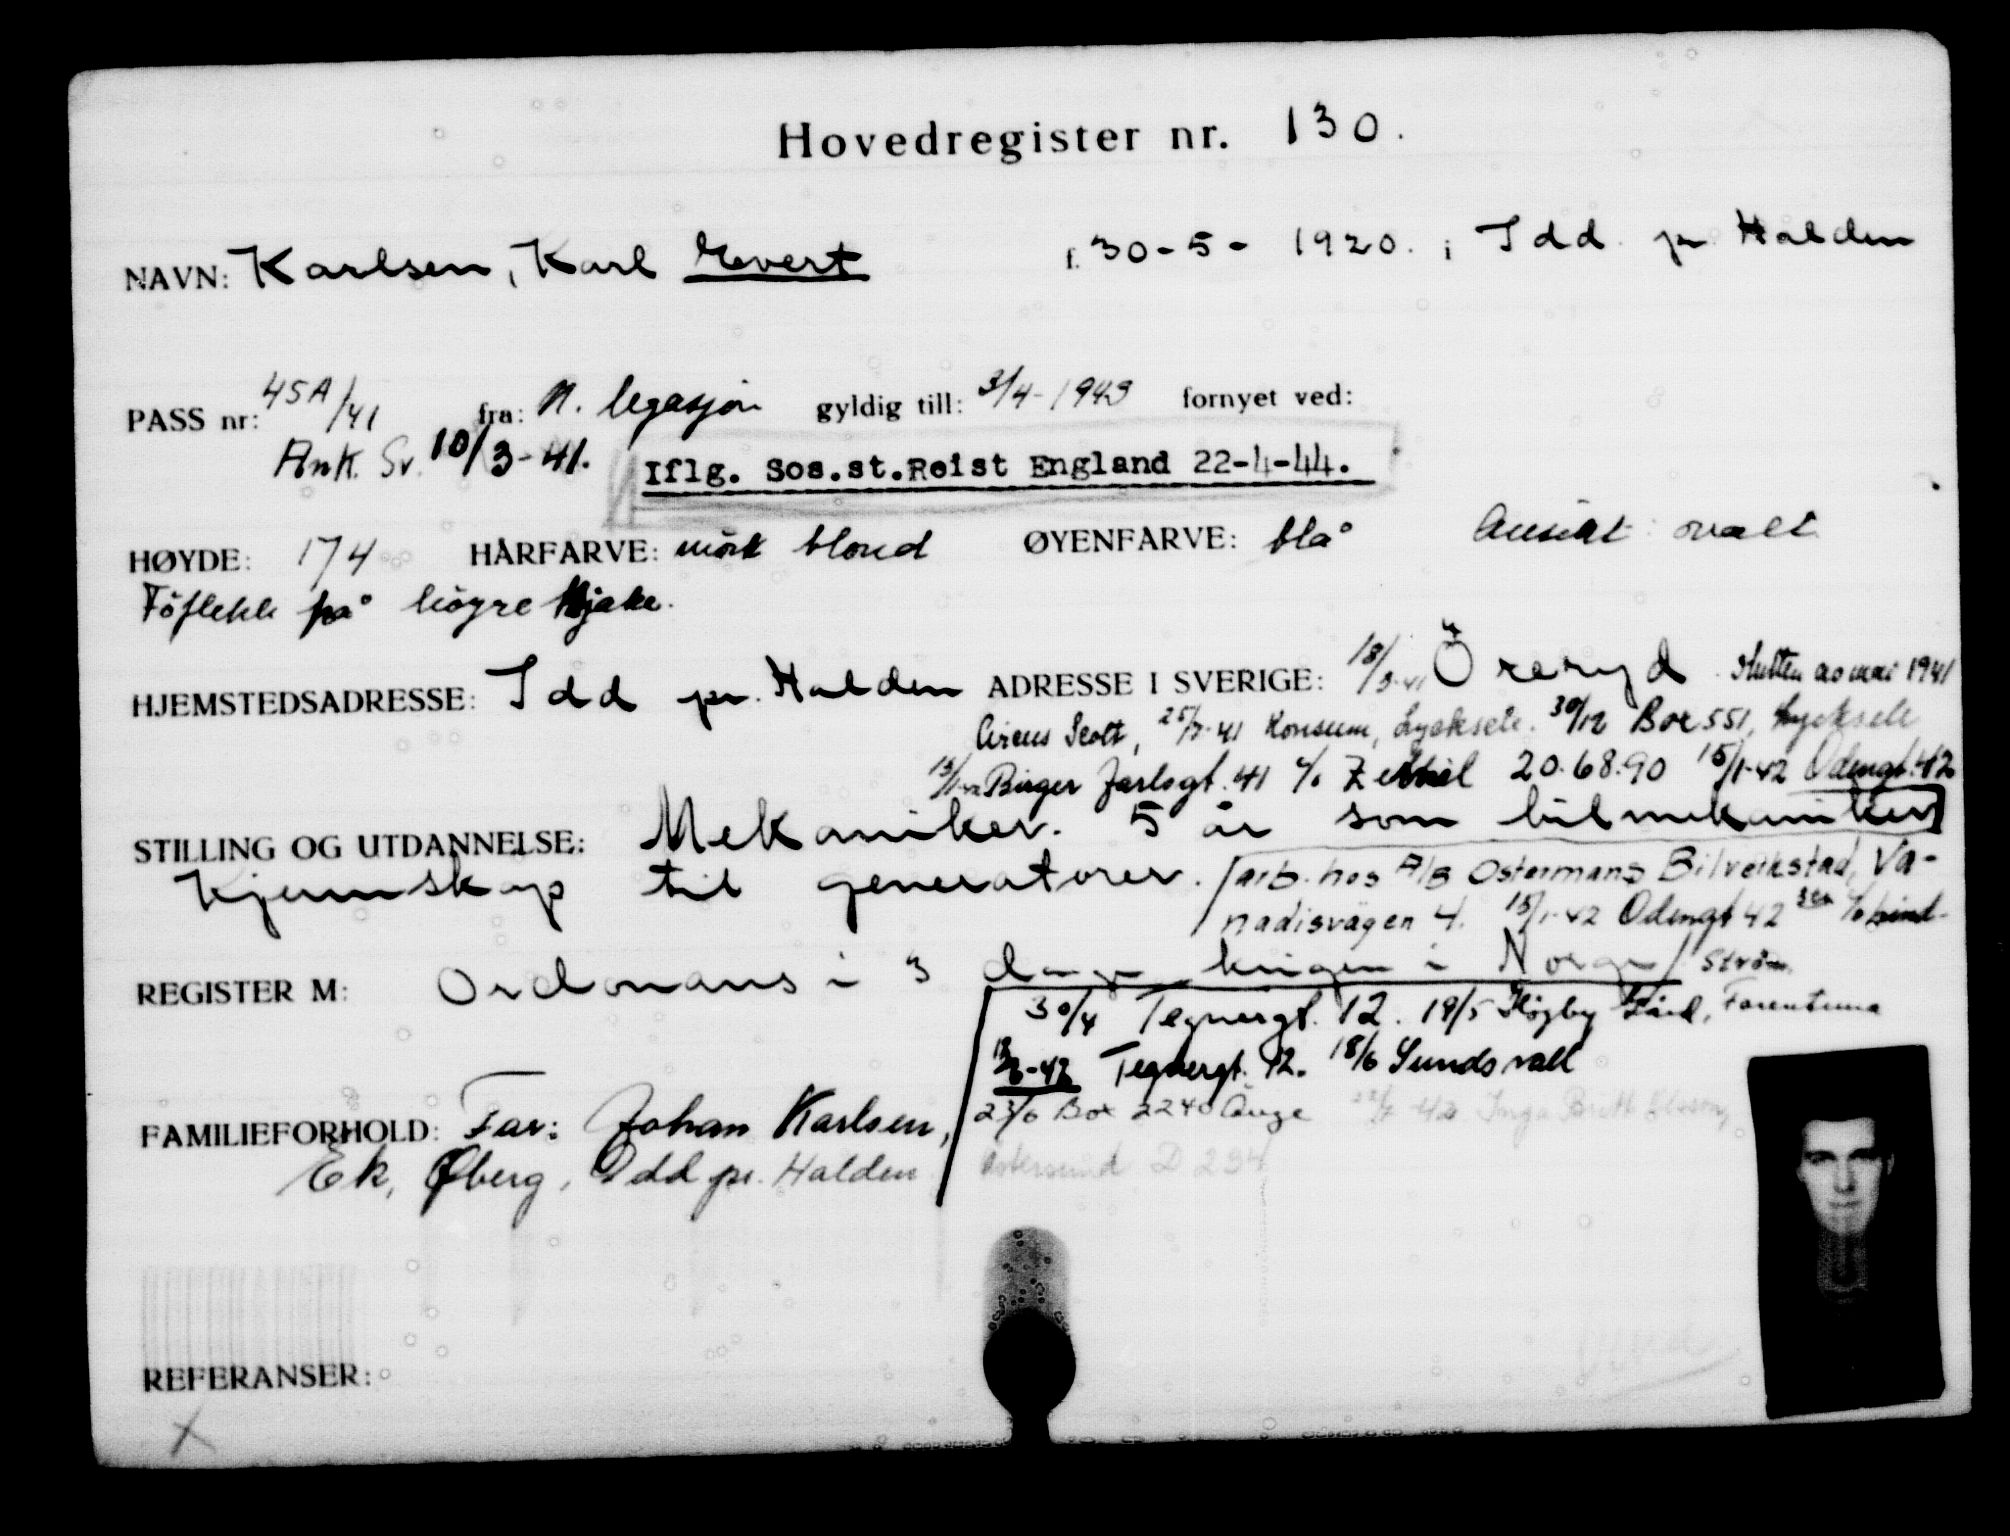 Hovedregister nr. 130.
NAVN: Karlsen, Karl Evert f. 30-5-1920. i Idd pr. Halden
PASS nr: 45A/41 fra: N. legasjon gyldig till: 3/4-1943 fornyet ved:
Ank. Sv. 10/3-41. Iflg. Sos.st.Reist England 22-4-44.
HØYDE: 174 HÅRFARVE: mörk blond ØYENFARVE: blå Ansikt: ovalt
Föflekk på högre Hjake.
HJEMSTEDSADRESSE: Idd pr. Halden ADRESSE I SVERIGE: 18/3-41 Öreryd. Slutten av mai 1941
Circus Scott, 25/7-41 Konsum, Lycksele. 30/12 Box 551, Lycksele
Birger Jarlsgt. 41 c/o 20.68.90 15/1-42 Odengt. 42
STILLING OG UTDANNELSE: Mekaniker. 5 år som bilmekaniker
Kjennskap til generatorer. arb. hos A/B Ostermans Bilverkstad, Va-
nadisvägen 4. 15/1-42 Odengt 42 c/o Lind-
REGISTER M: Ordonans i 3 dage krigen i Norge Ström
30/4 Tegnergt. 12. 19/5 Högby Gård, Forentuna
-42 Tegnergt. 12. 18/6 Sundsvall
FAMILIEFORHOLD: Far: Johan Karlsen, 23/6 Box 2240 Ånge 42 Inga Britt
Ek, Øberg, Idd pr. Halden Östersund D 234
REFERANSER:
X